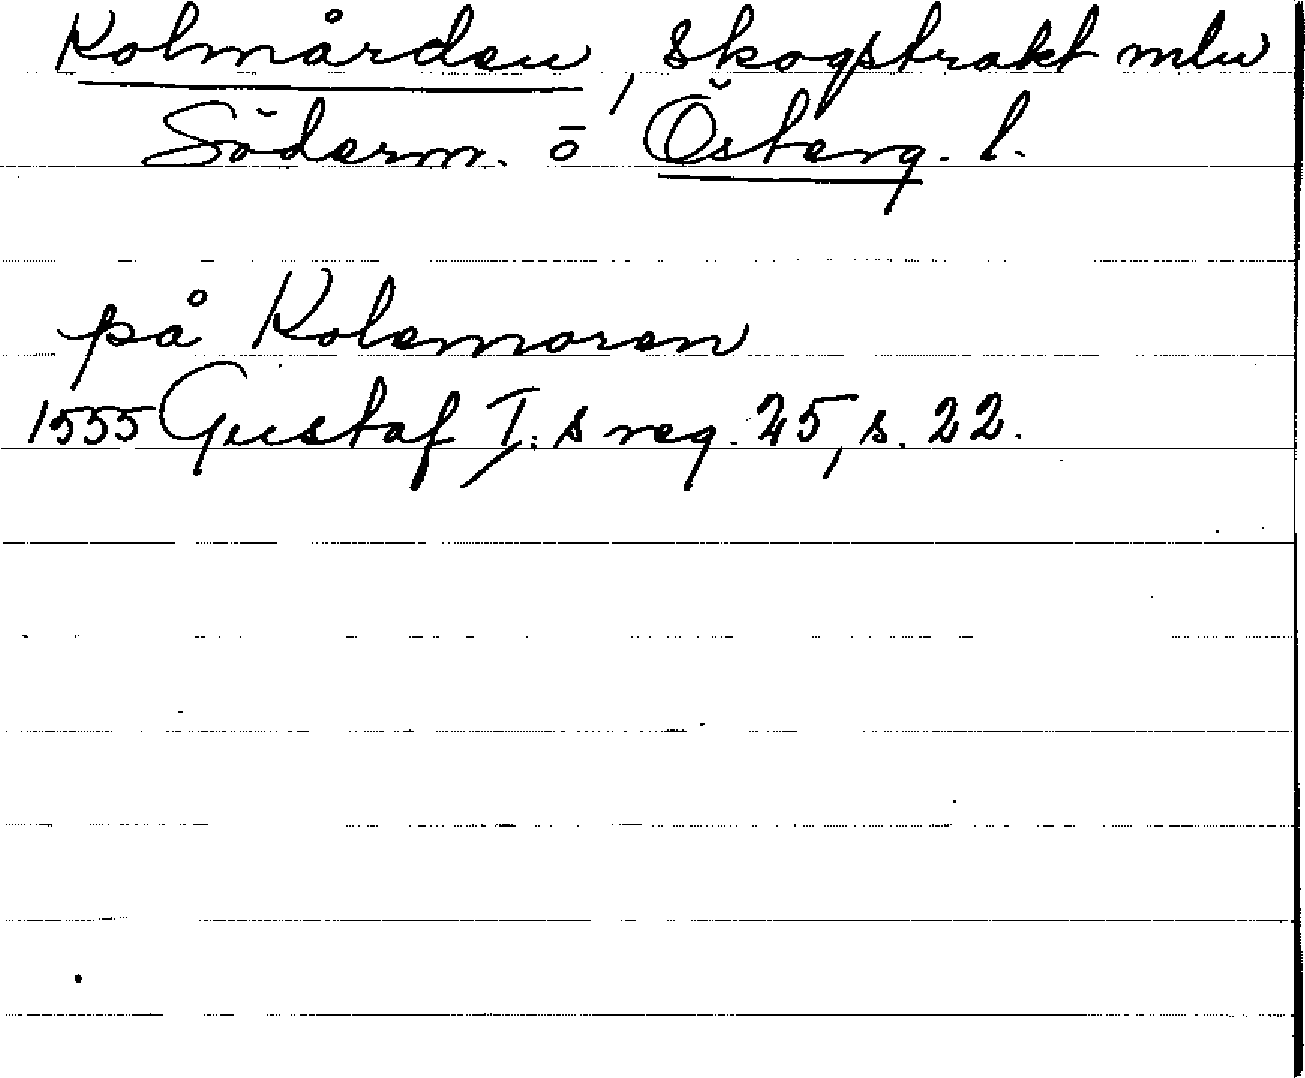 Kolmården, skogstrakt mlw
Söderm. o Österg. l.
på Kolemoren
1555 Gustaf I:s reg. 25, s. 22.